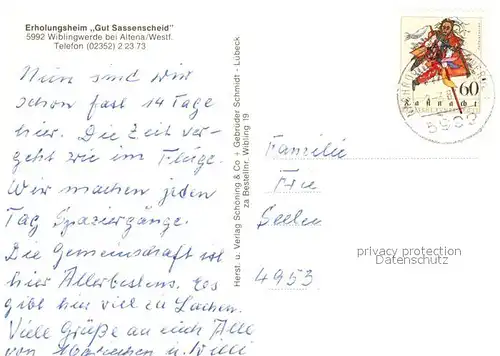 Erholungsheim „Gut Sassenscheid"
5992 Wiblingwerde bei Altena/Westf.
Telefon (02352) 2 23 73
Nun sind wir
schon fast 14 Tage
hier. Die Zeit ver-
geht wie im Fluge.
Wir machen jeden
Tag Spaziergänge.
Die Gemeinschaft ist
hier Allerbestens. Es
gibt hier viel zu Lachen.
Viele Grüße an euch Alle
von u. Willi
Herst. u. Verlag Schöning & Co · Gebrüder Schmidt - Lübeck
za Bestellnr. Wibling 19
60
Fastnacht
Familie
Seelen
4953
privacy protection
Datenschutz